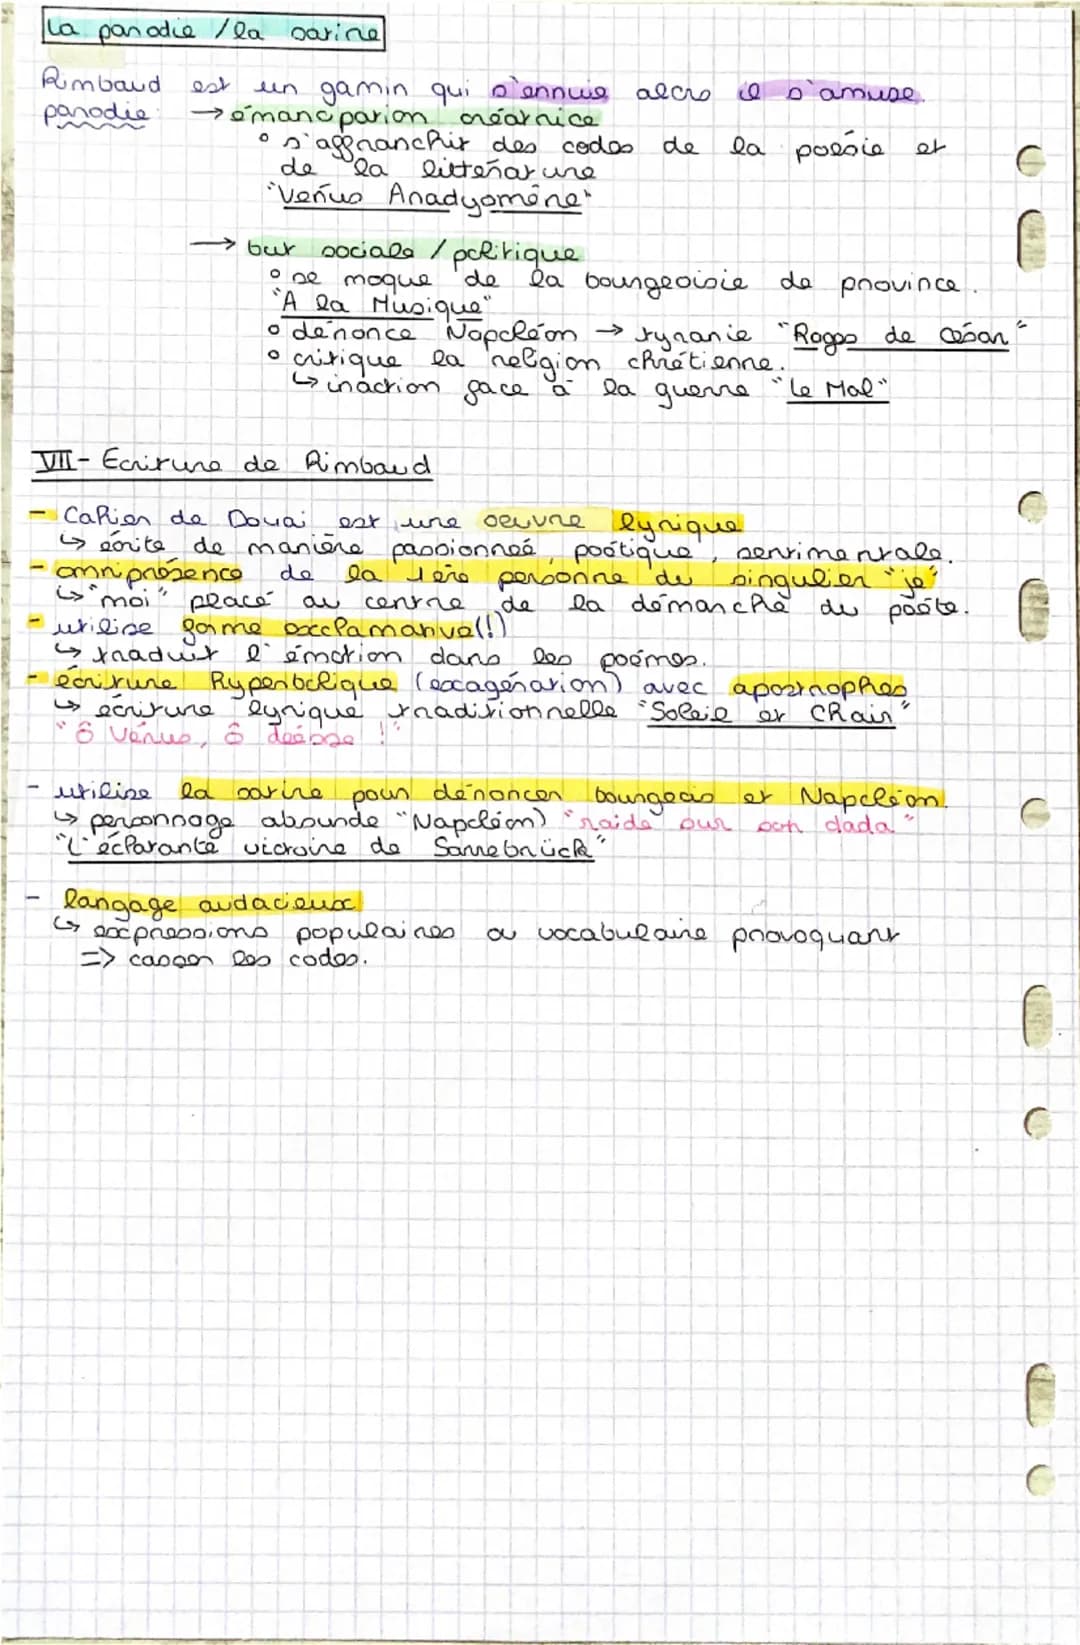 La parodie / la satire
Rimbaud est un gamin qui s'ennuie alors il s'amuse.
parodie : → émancipation créatrice
° s'affranchir des codes de la poésie et
de la littérature
"Vénus Anadyomène"
→ but sociale / politique
° se moque de la bourgeoisie de province.
"A la Musique"
° dénonce Napoléon → tyranie "Rages de César"
° critique la religion chrétienne.
↳ inaction face à la guerre "Le Mal"
VII - Ecriture de Rimbaud
- Cahier de Douai est une oeuvre lyrique
↳ écrite de manière passionneé, poétique, sentimentale.
- omniprésence de la 1ère personne du singulier "je"
↳ "moi" placé au centre de la démarche du poète.
- utilise forme exclamative(!)
↳ traduit l'émotion dans les poèmes.
- écriture hyperbolique (exagération) avec apostrophes
↳ écriture lyrique traditionnelle "Soleil et Chair"
"Ô Vénus, ô déesse !"
- utilise la satire pour dénoncer bourgeois et Napoléon.
↳ personnage absurde "Napoléon) "raide sur son dada"
"L'éclatante victoire de Sarrebrück"
- langage audacieux
↳ expressions populaires ou vocabulaire provoquant
=> casser les codes.